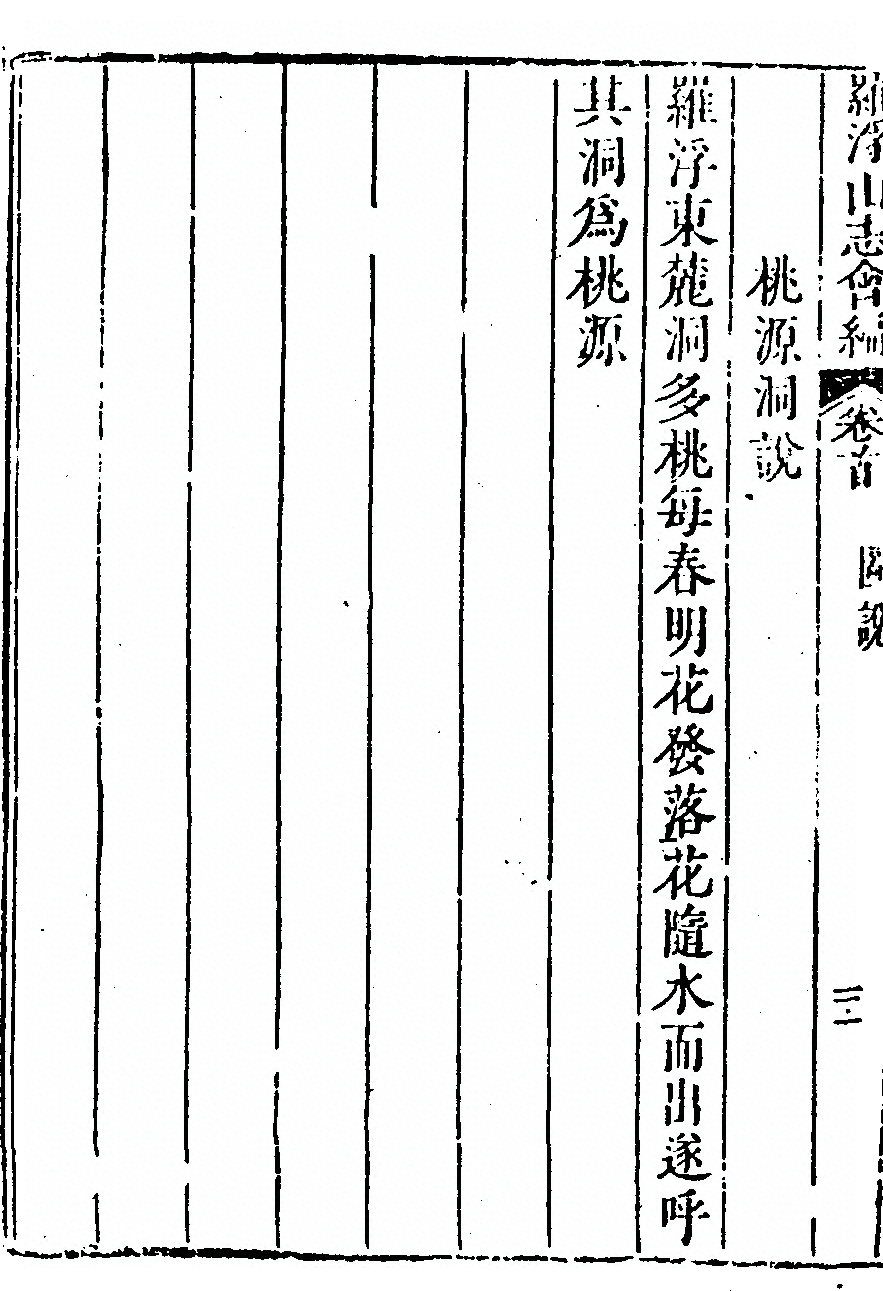 羅浮山志會編 卷首 圖說 三
桃源洞說
羅浮東麓洞多桃每春明花發落花隨水而出遂呼
其洞爲桃源